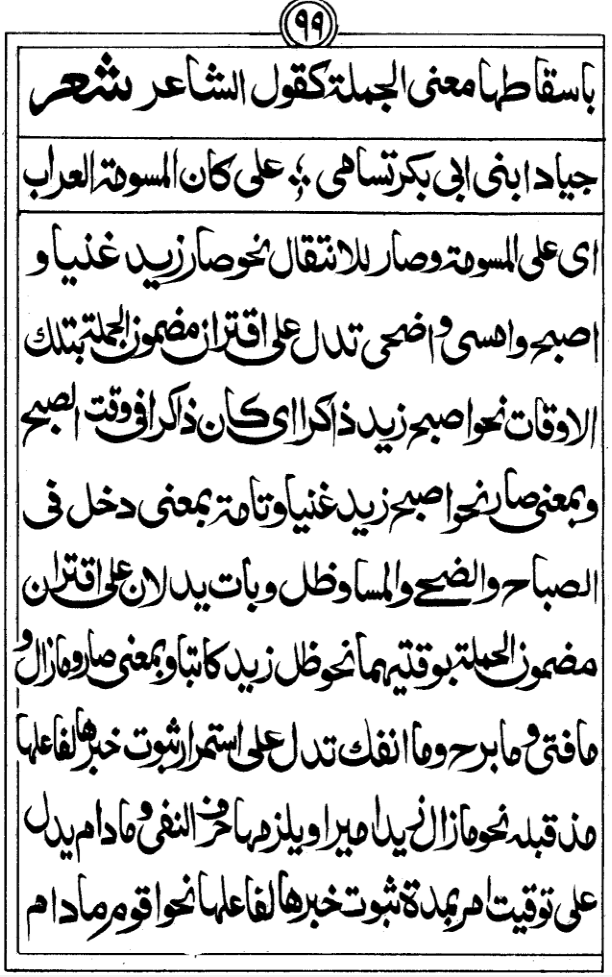 ٩٩
باسقاطها معنى الجملة كقول الشاعر شعر
جياد ابنى ابى بكر تساهى ؛ على كان المسومة العراب
اى على المسومة وصار للانتقال نحو صار زيد غنيا و
اصبح وامسى واضحى تدل على اقتران مضمون الجملة بتلك
الاوقات نحو اصبح زيد ذاكرا اى كان ذاكرا فى وقت الصبح
وبمعنى صار نحو اصبح زيد غنيا وتامة بمعنى دخل فى
الصباح والضحى والمسا وظل وبات يدلان على اقتران
مضمون الجملة بوقتيهما نحو ظل زيد كاتبا وبمعنى صار ومازال و
مافتى وما برح وما انفك تدل على استمرار ثبوت خبرها لفاعلها
مذ قبله نحو مازال زيد اميرا ويلزمها حرف النفى ومادام يدل
على توقيت امر بمدة ثبوت خبرها لفاعلها نحو اقوم مادام